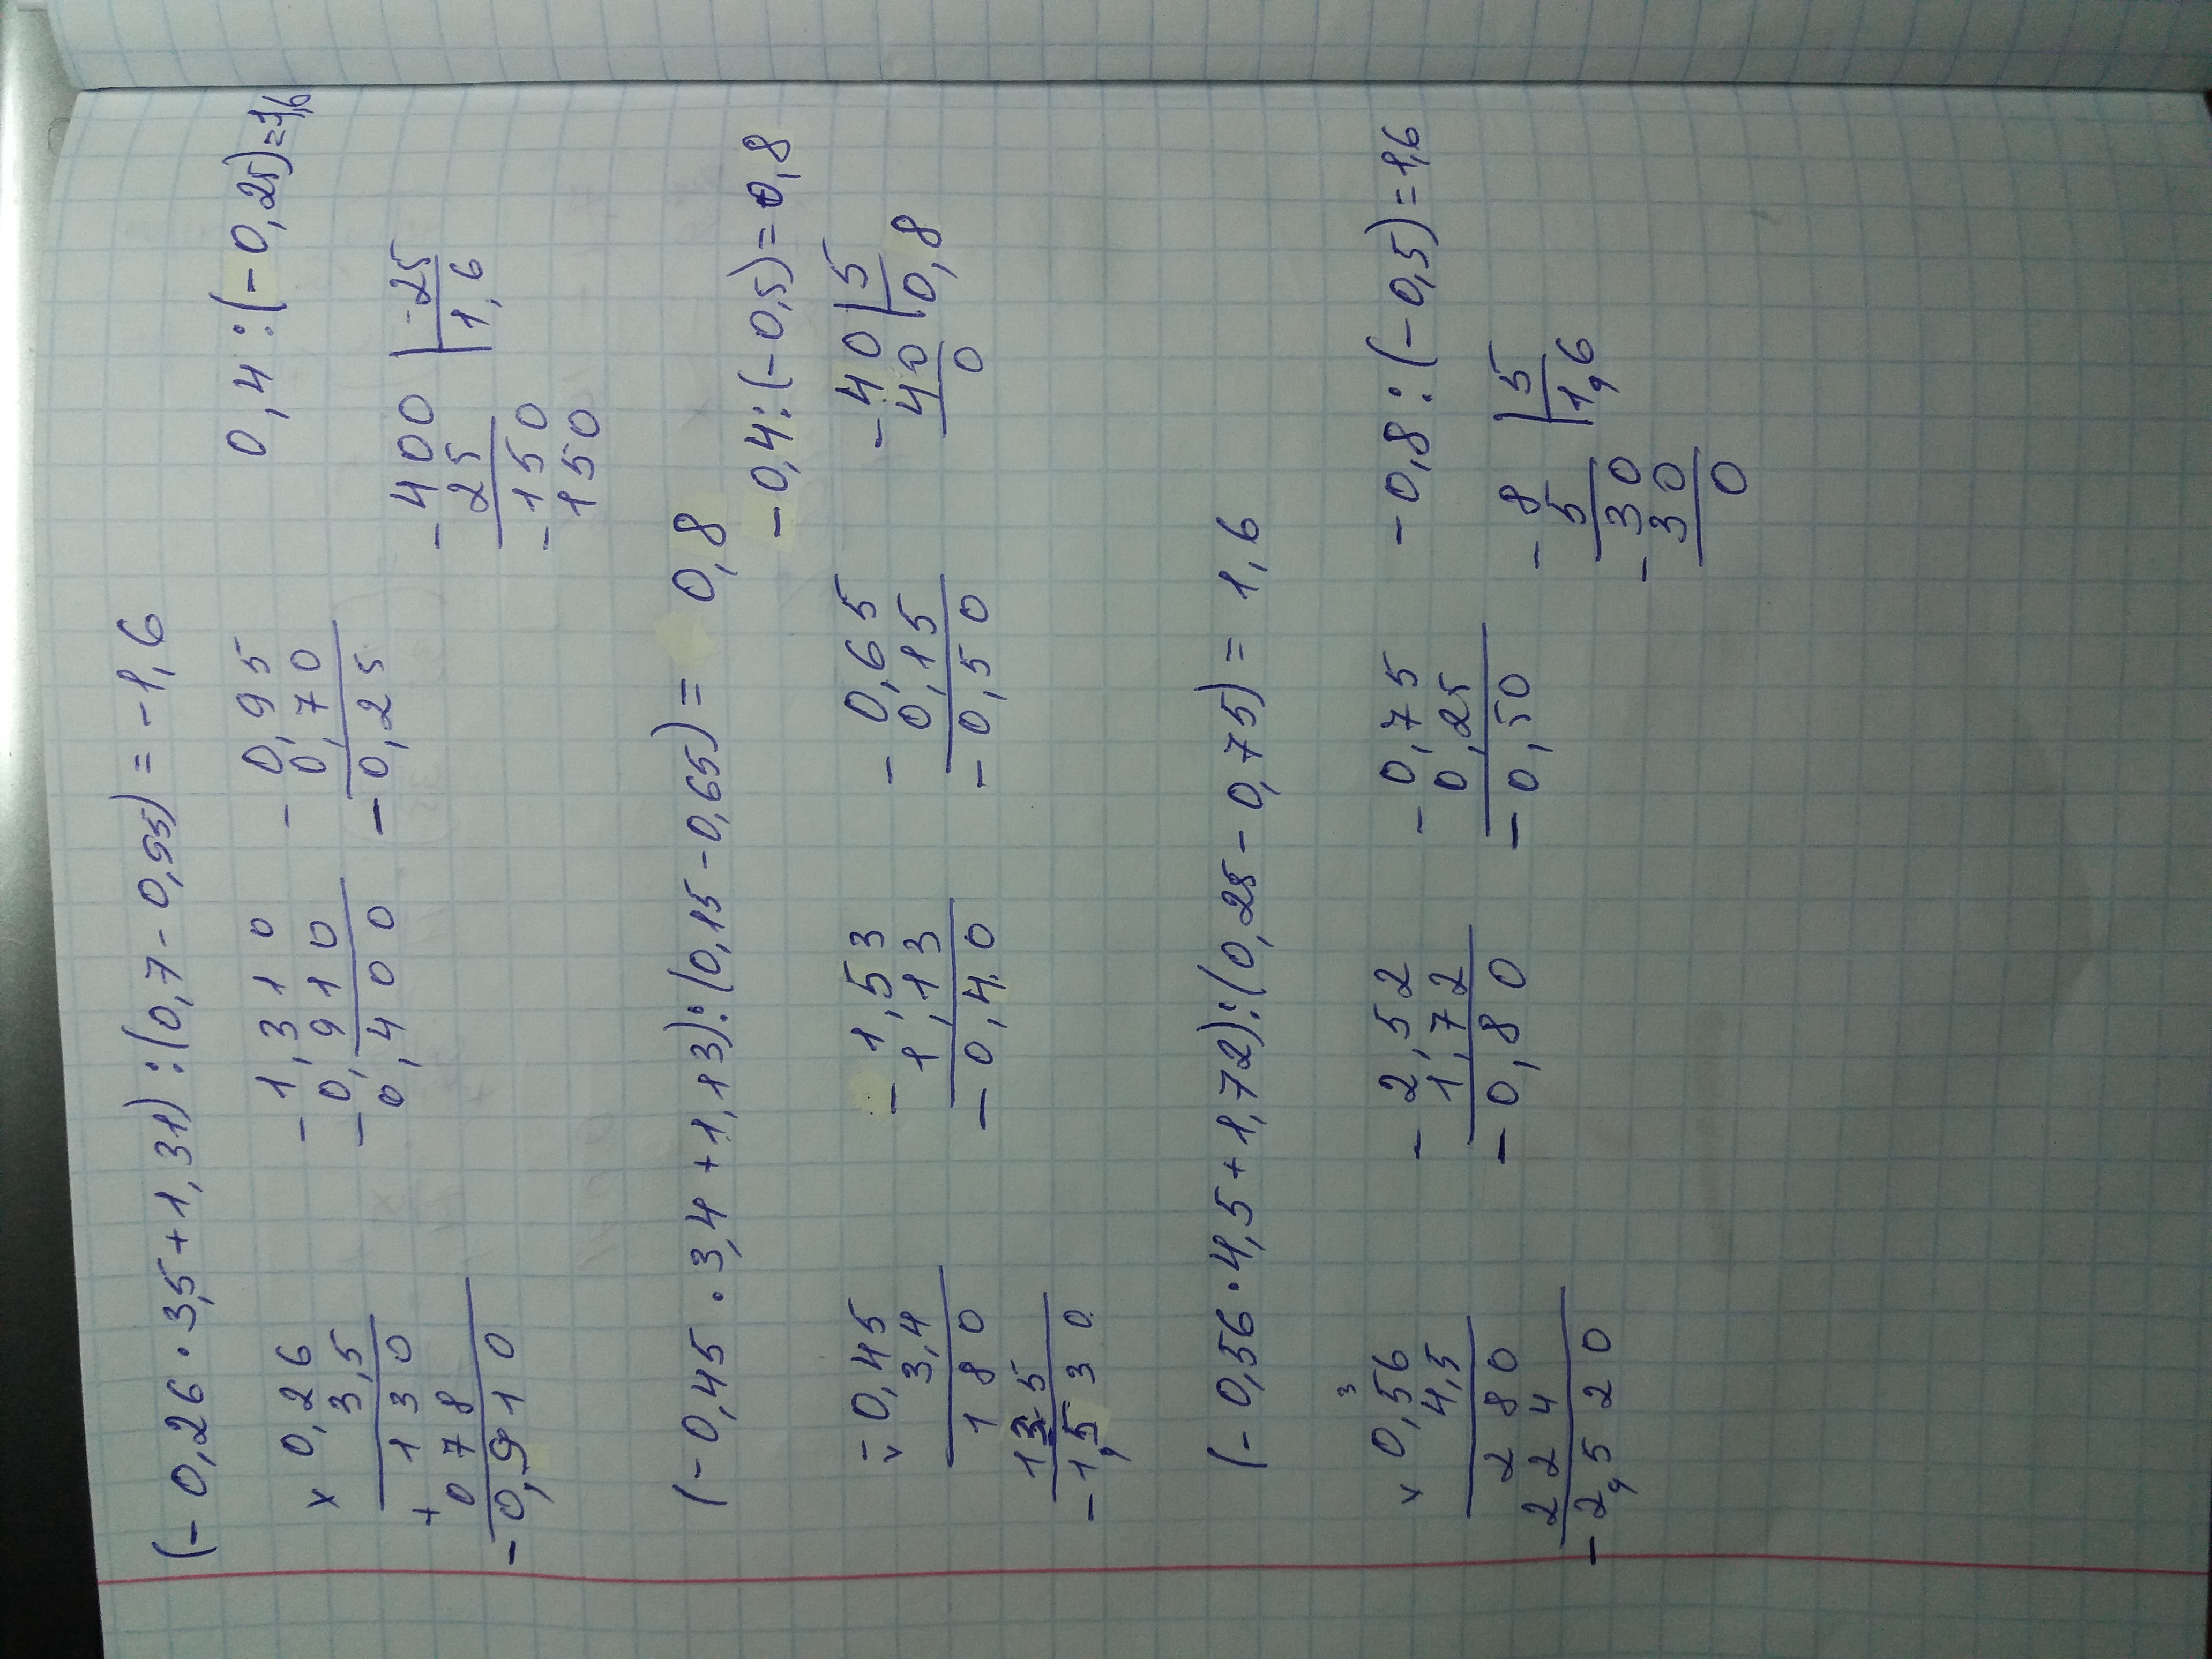 (- 0,26 · 3,5 + 1,31) : (0,7 - 0,95) = - 1,6
× 0,26
3,5
1 3 0
+ 0 7 8
- 0,9 1 0
- 1,3 1 0
- 0,9 1 0
0,4 0 0
- 0,9 5
0,7 0
- 0,2 5
0,4 : (- 0,25) = 1,6
- 400 | -25
25 1,6
- 150
150
(- 0,45 · 3,4 + 1,13) : (0,15 - 0,65) = 0,8
× - 0,45
3,4
1 8 0
1 3 5
- 1,5 3 0
- 1,5 3
1,1 3
- 0,4 0
- 0,6 5
0,1 5
- 0,5 0
- 0,4 : (- 0,5) = 0,8
- 4 0 | 5
4 0 0,8
0
(- 0,56 · 4,5 + 1,72) : (0,25 - 0,75) = 1,6
3
× 0,56
4,5
2 8 0
2 2 4
- 2,5 2 0
- 2,5 2
1,7 2
- 0,8 0
- 0,7 5
0,2 5
- 0,50
- 0,8 : (- 0,5) = 1,6
- 8 | 5
5 1,6
- 3 0
3 0
0